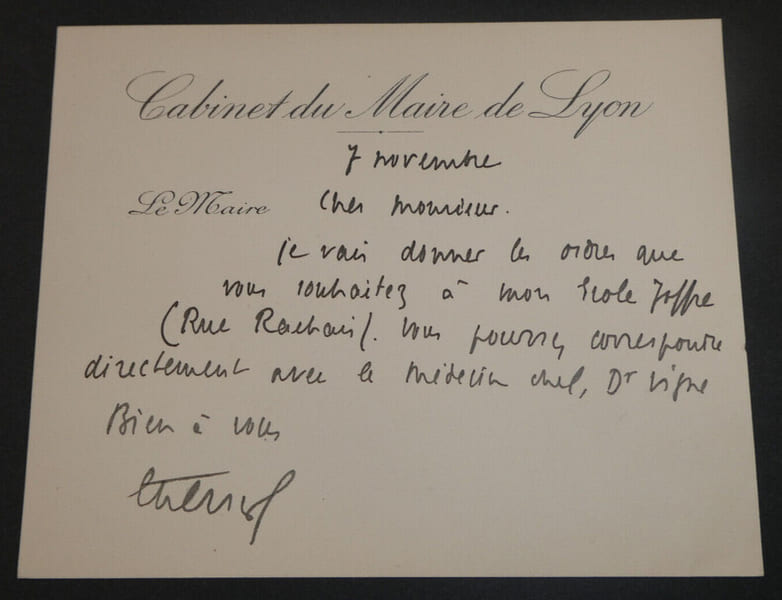 Cabinet du Maire de Lyon
7 novembre
Le Maire
Cher Monsieur.
je vais donner les ordres que
vous souhaitez à mon École Joffre
(Rue Rachais). Vous pourrez correspondre
directement avec le Médecin chef, Dr Vigne
Bien à vous